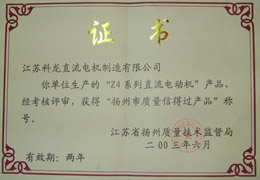 证书
江苏科龙直流电机制造有限公司
你单位生产的“Z4系列直流电动机”产品，
经考核评审，获得“扬州市质量信得过产品”称
号。
江苏省扬州质量技术监督局
二00三年六月
有效期：两年